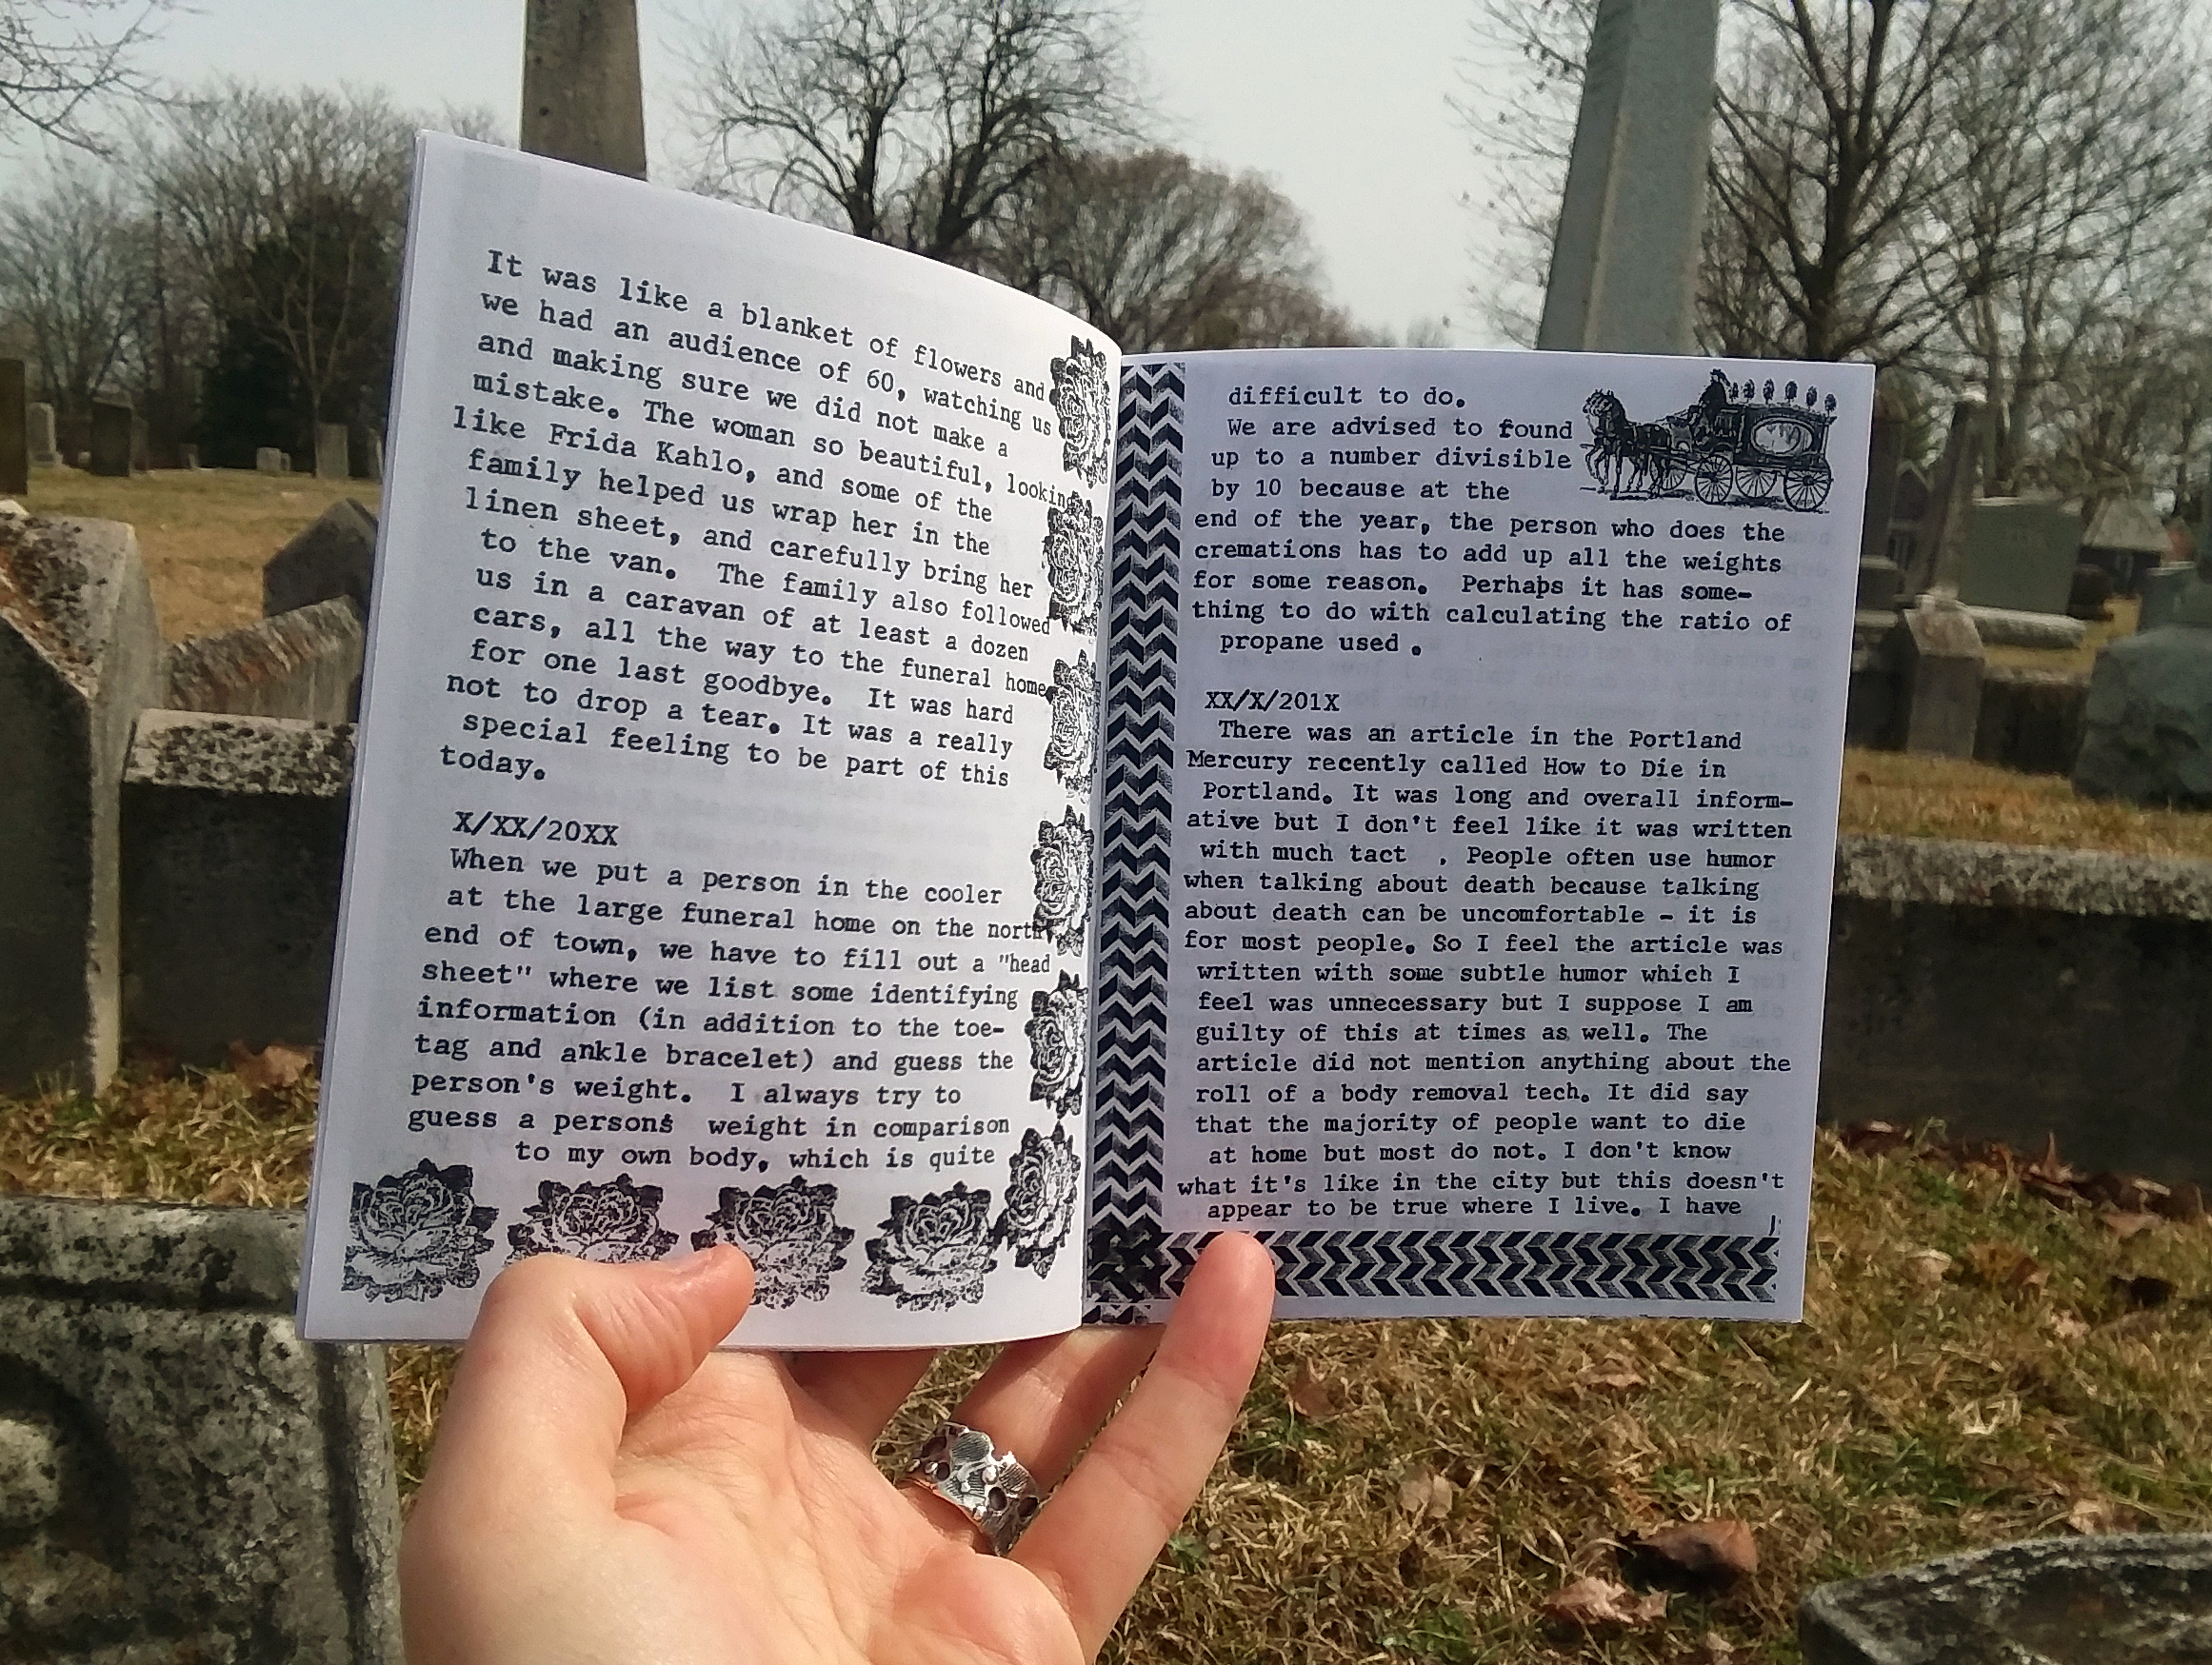 It was like a blanket of flowers and
we had an audience of 60, watching us
and making sure we did not make a
mistake. The woman so beautiful, looking
like Frida Kahlo, and some of the
family helped us wrap her in the
linen sheet, and carefully bring her
to the van. The family also followed
us in a caravan of at least a dozen
cars, all the way to the funeral home
for one last goodbye. It was hard
not to drop a tear. It was a really
special feeling to be part of this
today.
X/XX/20XX
When we put a person in the cooler
at the large funeral home on the north
end of town, we have to fill out a "head
sheet" where we list some identifying
information (in addition to the toe-
tag and ankle bracelet) and guess the
person's weight. I always try to
guess a persons weight in comparison
to my own body, which is quite
difficult to do.
We are advised to found
up to a number divisible
by 10 because at the
end of the year, the person who does the
cremations has to add up all the weights
for some reason. Perhaps it has some-
thing to do with calculating the ratio of
propane used .
XX/X/201X
There was an article in the Portland
Mercury recently called How to Die in
Portland. It was long and overall inform-
ative but I don't feel like it was written
with much tact . People often use humor
when talking about death because talking
about death can be uncomfortable - it is
for most people. So I feel the article was
written with some subtle humor which I
feel was unnecessary but I suppose I am
guilty of this at times as well. The
article did not mention anything about the
roll of a body removal tech. It did say
that the majority of people want to die
at home but most do not. I don't know
what it's like in the city but this doesn't
appear to be true where I live. I have